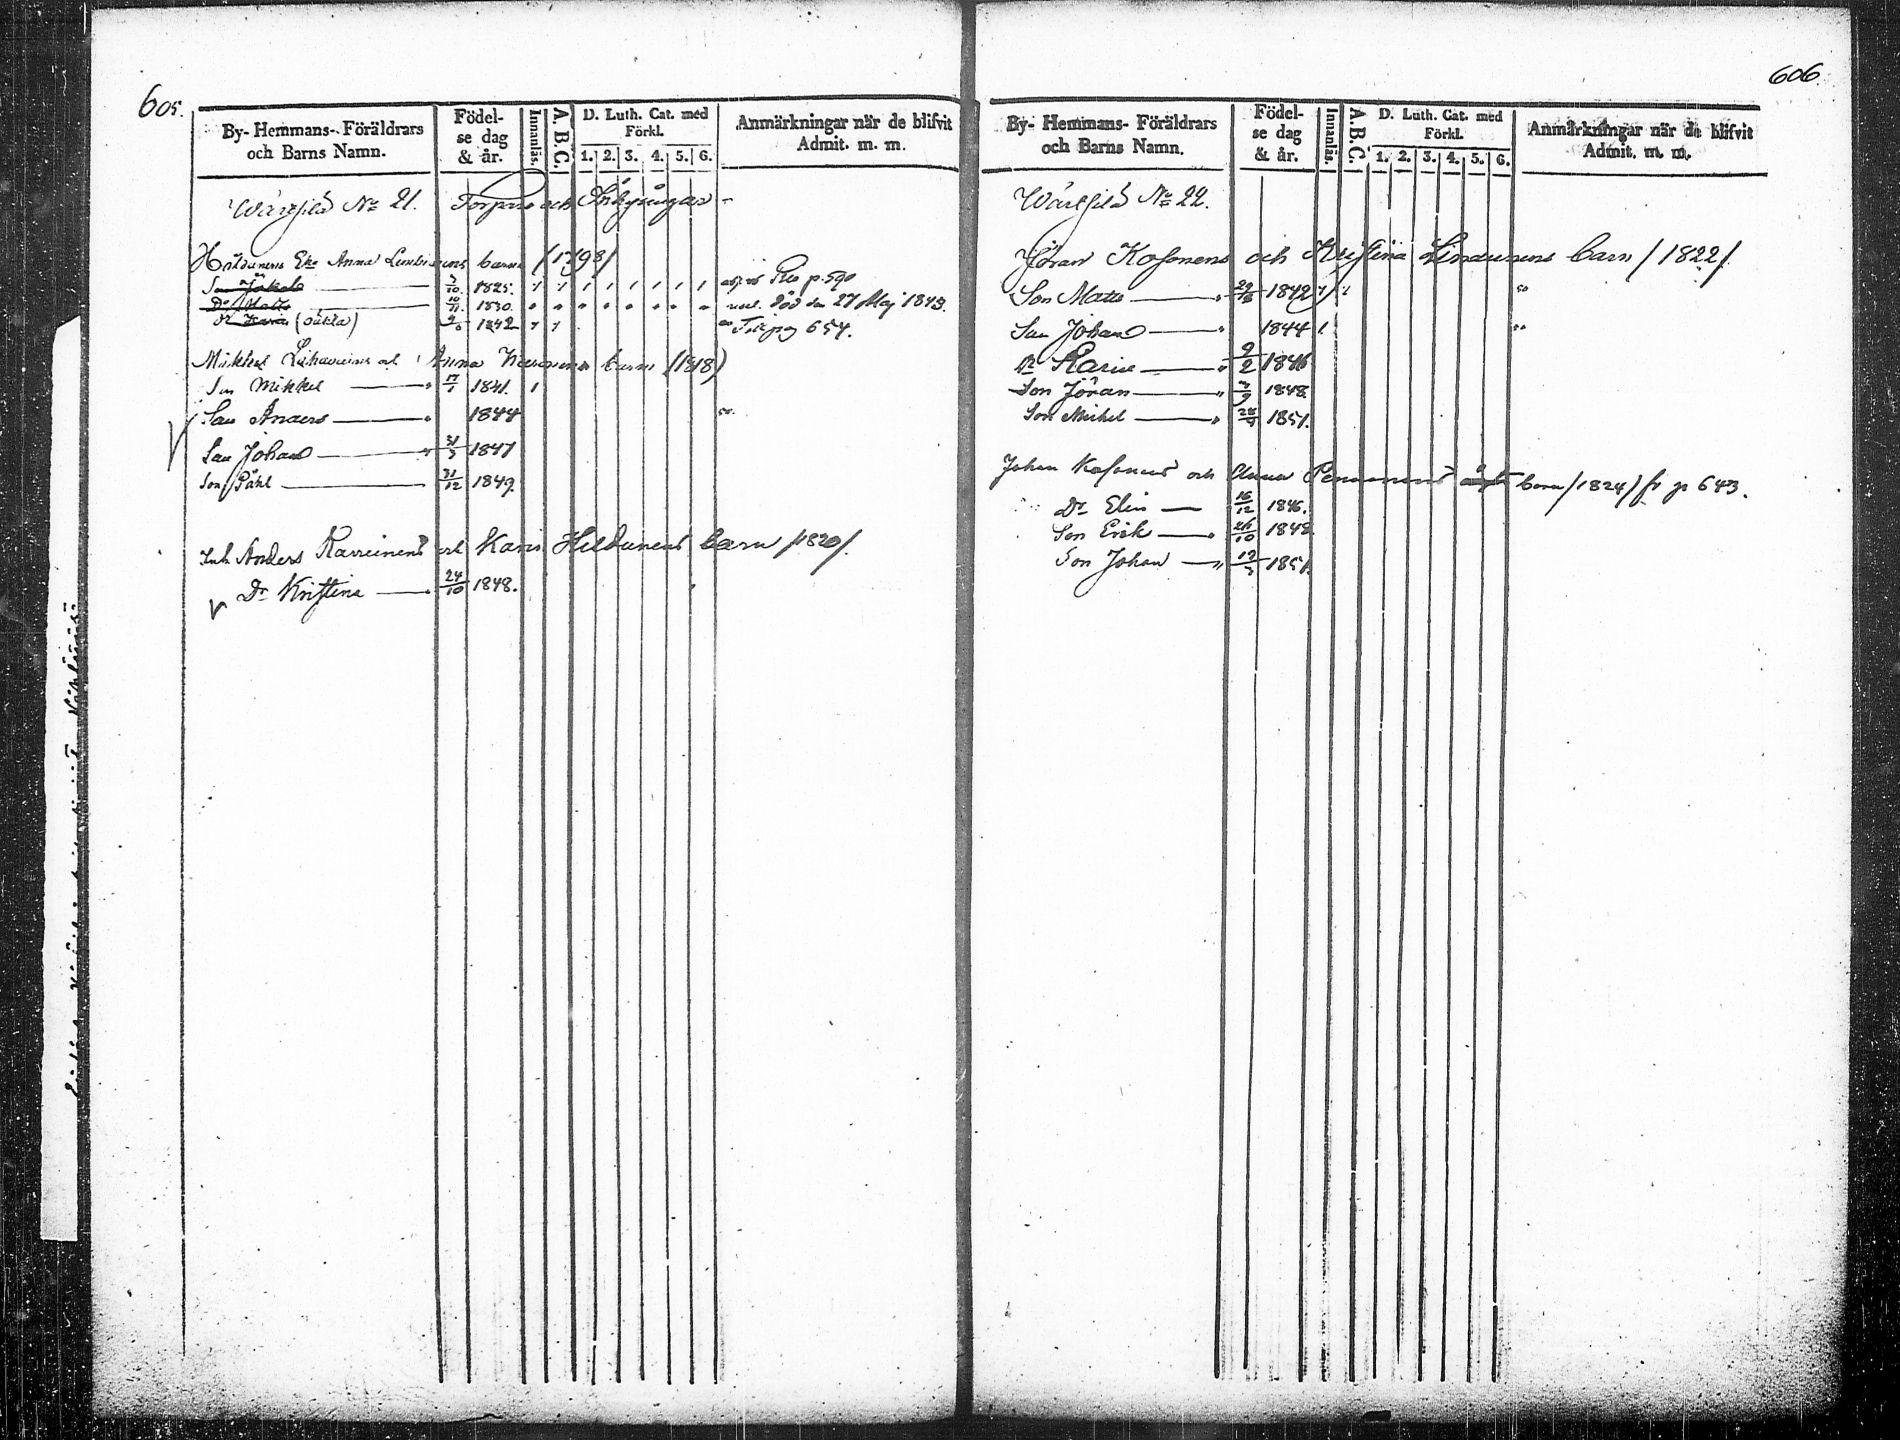 605.
By- Hemmans- Föräldrars och Barns Namn.
Födel- se dag & år.
Innanläs.
A.B.C.
D. Luth. Cat. med Förkl.
1. 2. 3. 4. 5. 6.
Anmärkningar när de blifvit Admit. m. m.
Wärtsilä No 21. Torpare och Inhysingar
Enka Anna barn /1798/
Son Jåkob 3/10. 1825. p. 590
Dr 10/11. 1830. död den 27 Maj 1843.
Dr Karin 1842 pag 654.
Mikkel och Anna barn (1818)
Son Mikkel 17/1 1841.
Son Anders 1844
Son Johan 31/3 1847
Son Påhl 31/12 1849.
Inh Anders och Karin Hildunens barn /1820/.
Dr Kristina 24/10 1848.
606
By- Hemmans- Föräldrars och Barns Namn.
Födel- se dag & år.
Innanläs.
A.B.C.
D. Luth. Cat. med Förkl.
1. 2. 3. 4. 5. 6.
Anmärkningar när de blifvit Admit. m. m.
Wärtsilä No 22.
Jöran Kosonens och Kristina barn /1822/
Son Matts 1842
Son Johan 1844
Dr Karin 9/2 1846
Son Jöran 1848.
Son Mickel 1851.
Johan Kosonens och Anna barn /1824/ fr p 643.
Dr Elin 16/12 1846.
Son Erik 26/10 1848.
Son Johan 12/3 1851.